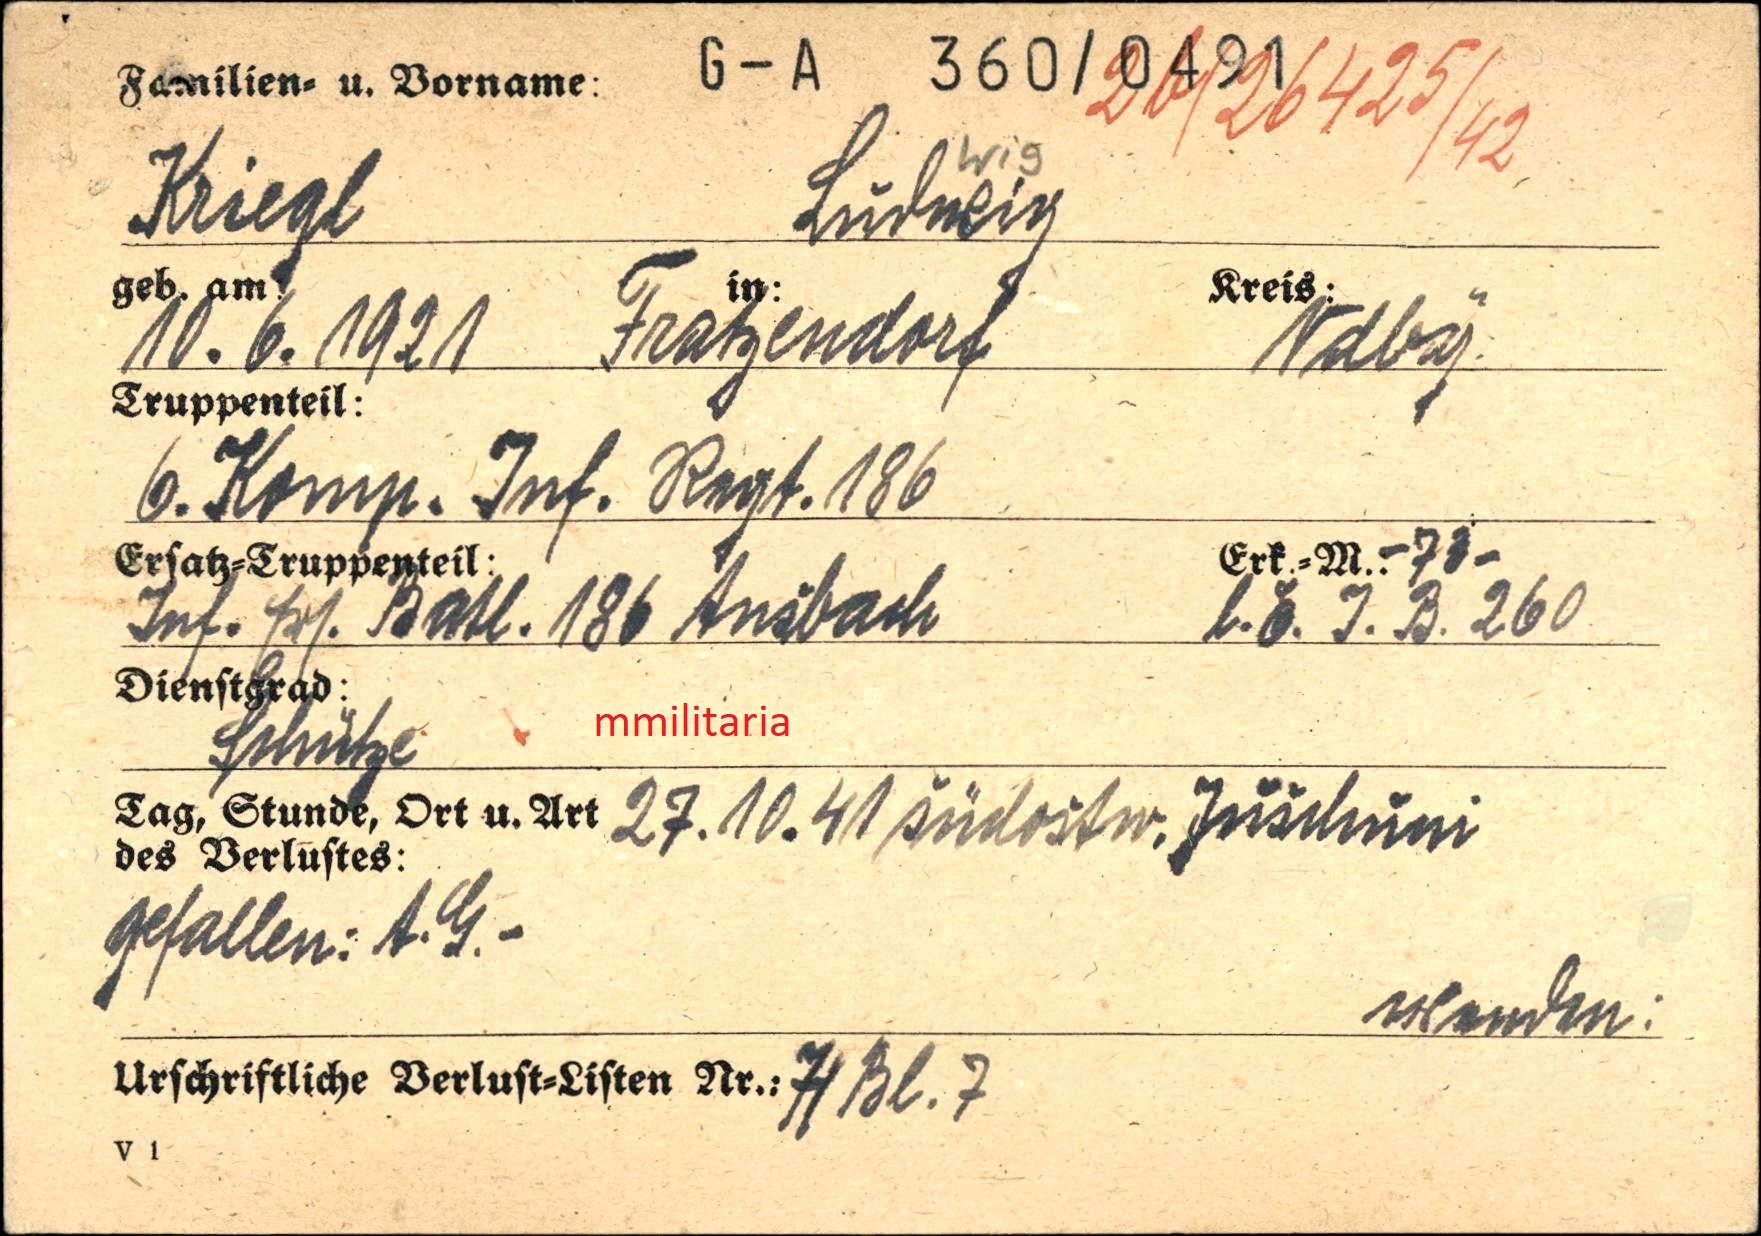 G-A 360/0491
26/26425/42
Familien- u. Vorname:
wig
Kriegl Ludwig
geb. am: in: Kreis:
10.6.1921 Fratzendorf Ndby.
Truppenteil:
6. Komp. Inf. Regt. 186
Ersatz-Truppenteil: Erk.-M.: -73-
Inf. Ers. Batl. 186 Ansbach l. E. J. B. 260
Dienstgrad:
Schütze
mmilitaria
Tag, Stunde, Ort u. Art 27.10.41 südostw. Juschuni
des Verlustes:
gefallen: A.G.-
wenden:
Urschriftliche Verlust-Listen Nr.: 7/ Bl. 7
V 1